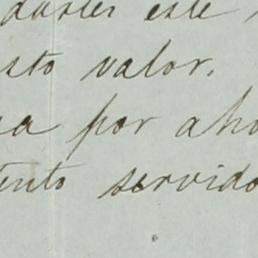 darles este
sto valor.
a por aho
ento servido